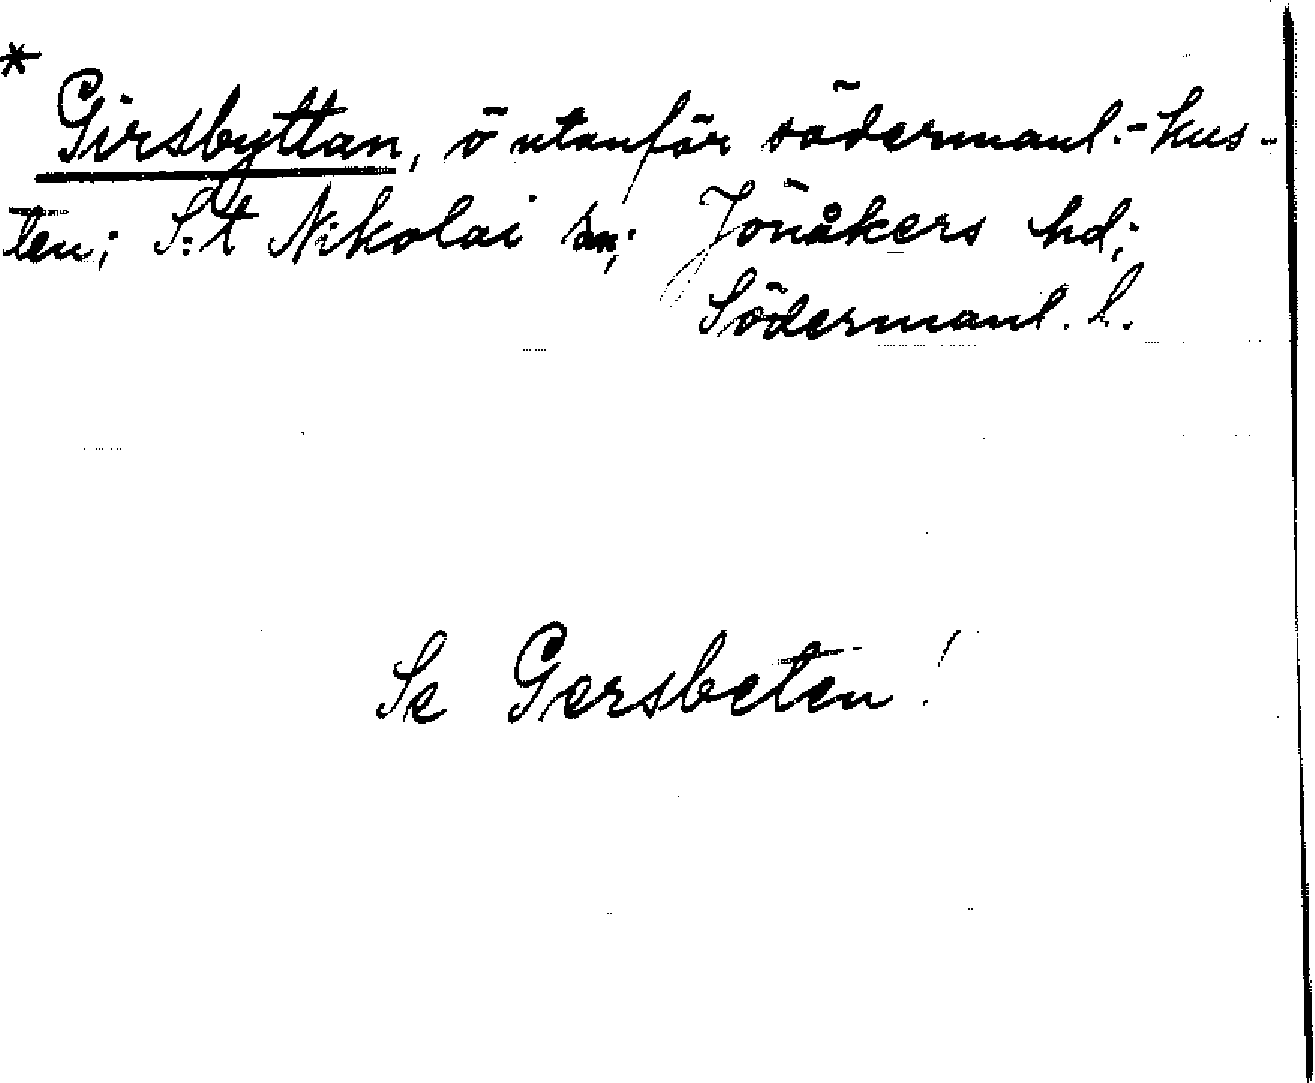 *
Girsbyttan, ö utanför södermanl.-kus-
ten; S:t Nikolai sn; Jönåkers hd;
Södermanl. l.
Se Gersbeten!